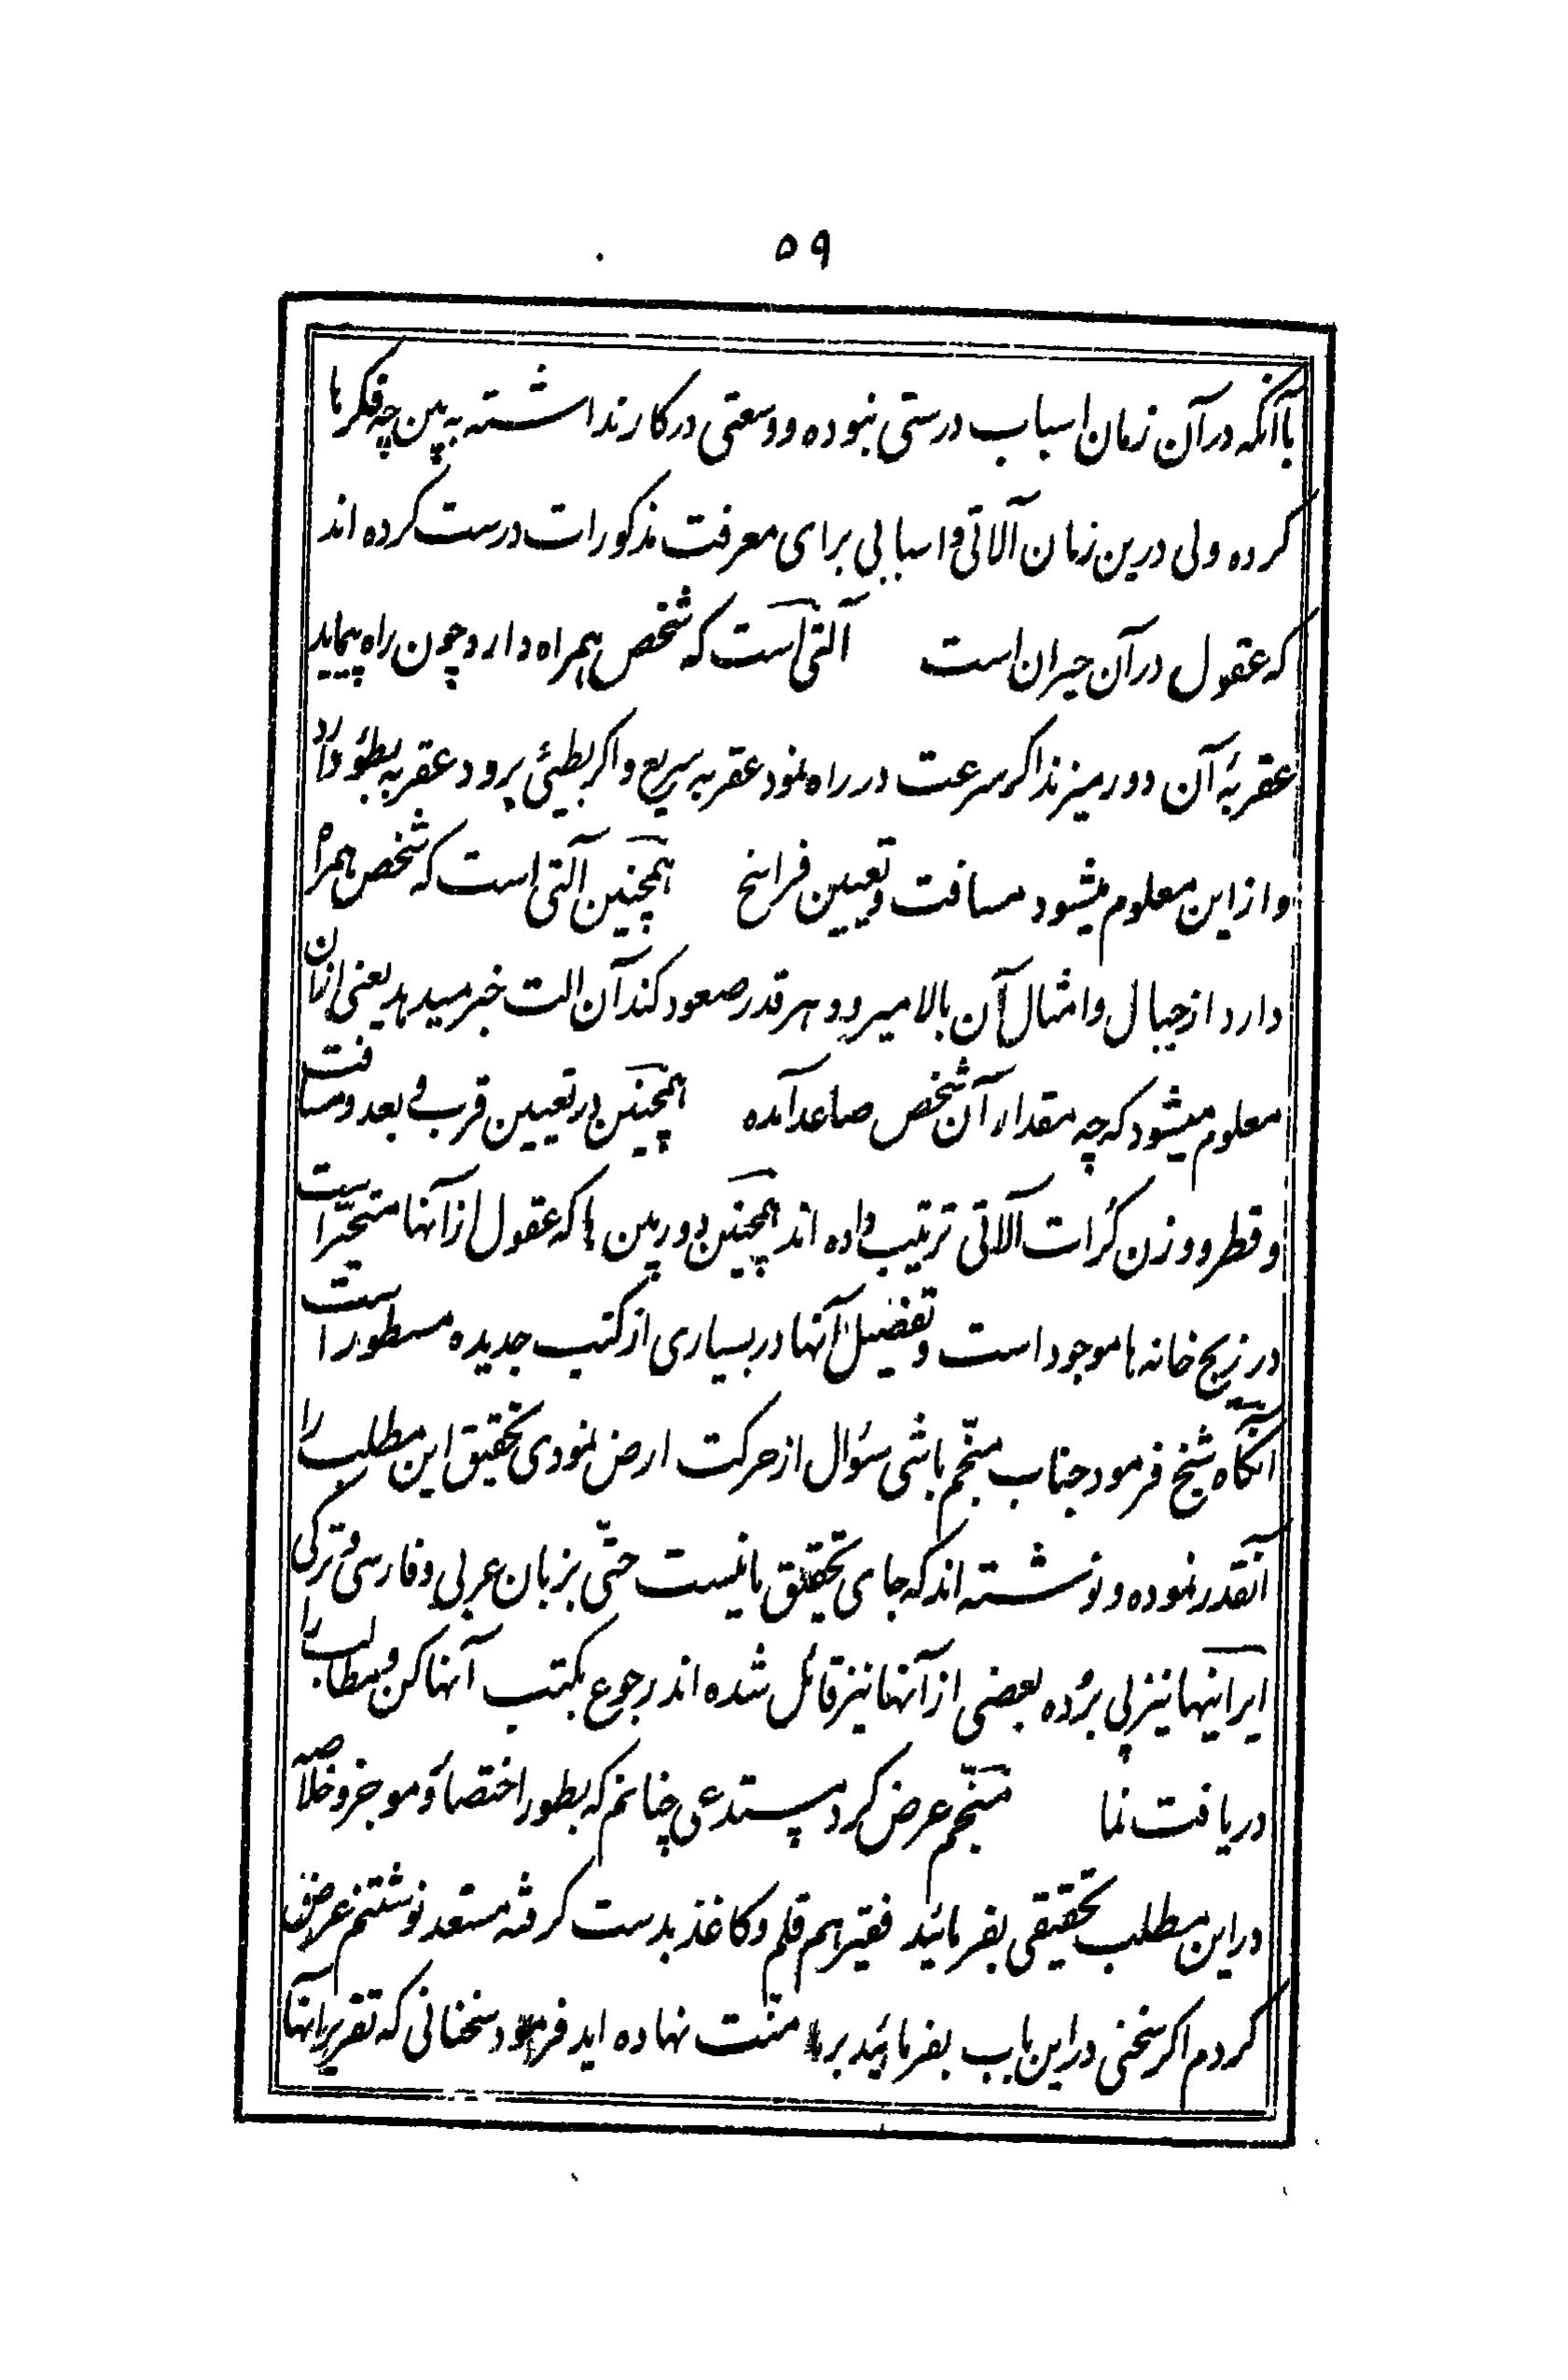 ۵۹
با آنکه در آن زمان اسباب درستی نبوده و وسعتی در کار نداشته به بین چه فکرها
کرده ولی درین زمان آلاتی و اسبابی برای معرفت مذکورات درست کرده اند
که عقول در آن حیران است آلتی است که شخص همراه دارد و چون راه پیماید
عقربهٔ آن دور میزند اکر سرعت در راه نمود عقربه سریع و اکر بطیئی برود عقربه بطؤ دارد
و از این معلوم میشود مسافت و تعیین فراسخ همچنین آلتی است که شخص همراه
دارد از جبال و امثال آن بالا میرود هر قدر صعود کند آن الت خبر میدهد یعنی از آن
معلوم میشود که چه مقدار آن شخص صاعد آمده همچنین در تعیین قرب و بعد و مسافت
و قطر و وزن کُرات آلاتی ترتیب داده اند همچنین دوربین ها که عقول از آنها متحیّر است
در زیج خانه ها موجود است و تفضیل آنها در بسیاری از کتب جدیده مسطور است
آنکاه شیخ فرمود جناب منجّم باشی سؤال از حرکت ارض نمودی تحقیق این مطلب را
آنقدر نموده و نوشته اند که جای تحقیق ما نیست حتّی بزبان عربی و فارسی و ترکی
ایرانیها نیز پی برُده بعضی از آنها نیز قائل شده اند رجوع بکتب آنها کن و مطالب را
دریافت نما منجّم عرض کرد مستدعی چنانم که بطور اختصار و موجز و خلاصه
در این مطلب تحقیقی بفرمائید فقیر هم قلم و کاغذ بدست کرفته مستعد نوشتنم عرض
کردم اکر سخنی در این باب بفرمائید بر ما منّت نهاده اید فرمود سخنانی که تقریر آنها